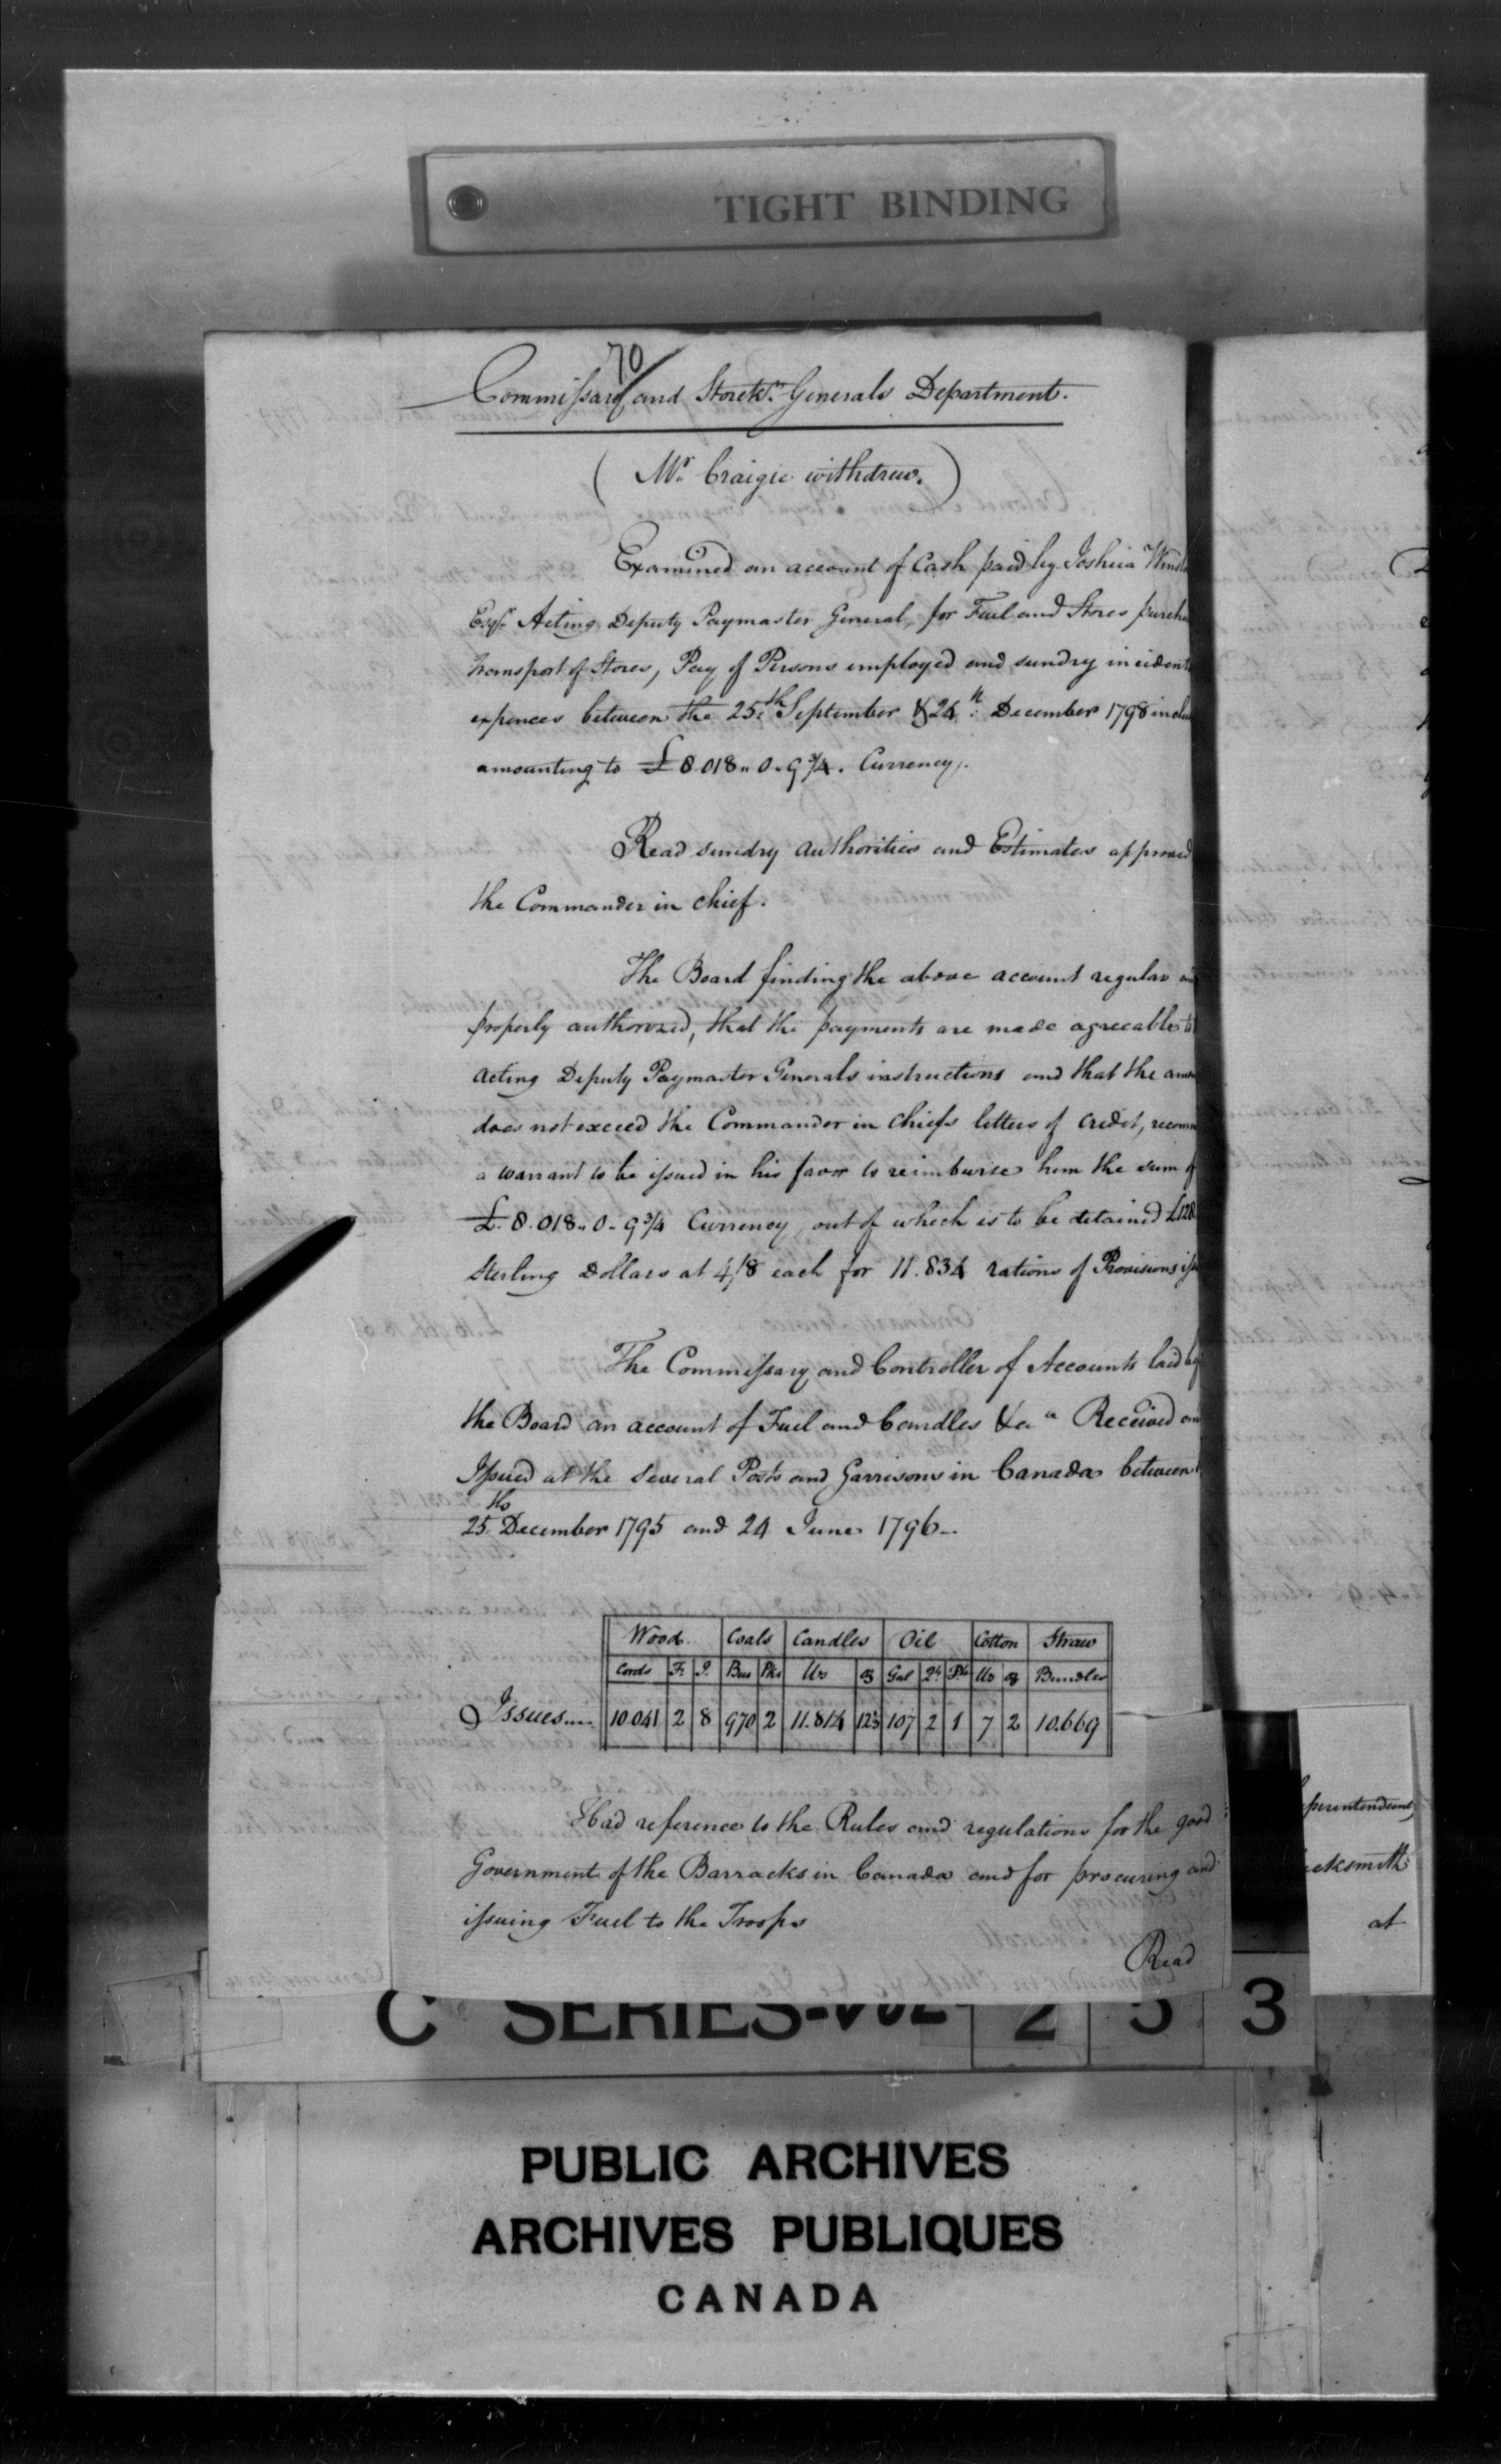 TIGHT BINDING
70
Commissary and Storekr. Generals Department.
( Mr. Craigie withdrew. )
Examined an account of Cash paid by Joshua Winslo
Esqr. Acting Deputy Paymaster General, for Fuel and Stores purcha
transport of Stores, Pay of Persons employed and sundry incidenta
expences between the 25th September & 24th December 1798 inclus
amounting to £8.018.. 0. 9¾. Currency.
Read sundry authorities and Estimates approved
the Commander in chief.
The Board finding the above account regular an
properly authorized, that the payments are made agreeable to
Acting Deputy Paymaster Generals instructions and that the amo
does not exceed the Commander in Chiefs letters of credit, recom
a warrant to be issued in his favor to reimburse him the sum of
£. 8.018.. 0. 9¾ Currency, out of which is to be detained £128
Sterling Dollars at 4/8 each for 11.834 rations of Provisions iss
The Commissary and Controller of Accounts laid be
the Board an account of Fuel and Candles &ca Received an
Issued at the Several Posts and Garrisons in Canada between
25th December 1795 and 24 June 1796..
Wood. Coals Candles Oil Cotton Straw
Cords F. I. Bus Pks lbs oz Gal Qts Pts lbs oz Bundles
Issues.... 10.041 2 8 970 2 11.814 12½ 107 2 1 7 2 10.669
Had reference to the Rules and regulations for the good
Government of the Barracks in Canada and for procuring and
issuing Fuel to the Troops
Read
perintendent
cksmith
at
C SERIES-VOL 2 5 3
PUBLIC ARCHIVES
ARCHIVES PUBLIQUES
CANADA